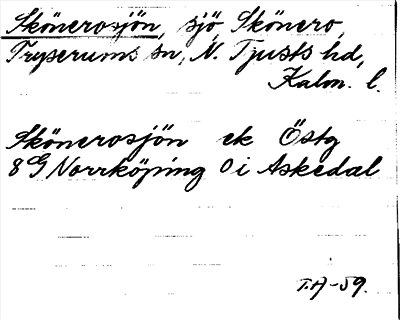 Skönerosjön, sjö, Skönero,
Tryserums sn, N. Tjusts hd,
Kalm. l.
Skönerosjön ek Östg
8G Norrköping 0i Askedal
T.A-59.